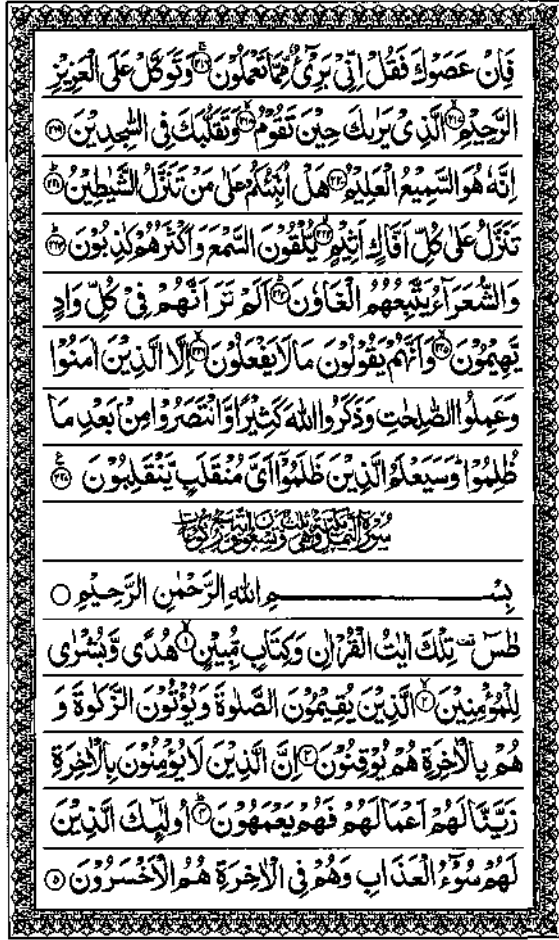 فَاِنْ عَصَوْكَ فَقُلْ اِنِّىْ بَرِىْٓءٌ مِّمَّا تَعْمَلُوْنَ ﴿۲۱۶﴾ وَتَوَكَّلْ عَلَى الْعَزِيْزِ
الرَّحِيْمِ ﴿۲۱۷﴾ الَّذِىْ يَرٰىكَ حِيْنَ تَقُوْمُ ﴿۲۱۸﴾ وَتَقَلُّبَكَ فِى السّٰجِدِيْنَ ﴿۲۱۹﴾
اِنَّهٗ هُوَ السَّمِيْعُ الْعَلِيْمُ ﴿۲۲۰﴾ هَلْ اُنَبِّئُكُمْ عَلٰى مَنْ تَنَزَّلُ الشَّيٰطِيْنُ ﴿۲۲۱﴾
تَنَزَّلُ عَلٰى كُلِّ اَفَّاكٍ اَثِيْمٍ ﴿۲۲۲﴾ يُّلْقُوْنَ السَّمْعَ وَاَكْثَرُهُمْ كٰذِبُوْنَ ﴿۲۲۳﴾
وَالشُّعَرَآءُ يَتَّبِعُهُمُ الْغَاوٗنَ ﴿۲۲۴﴾ اَلَمْ تَرَ اَنَّهُمْ فِىْ كُلِّ وَادٍ
يَّهِيْمُوْنَ ﴿۲۲۵﴾ وَاَنَّهُمْ يَقُوْلُوْنَ مَا لَا يَفْعَلُوْنَ ﴿۲۲۶﴾ اِلَّا الَّذِيْنَ اٰمَنُوْا
وَعَمِلُوا الصّٰلِحٰتِ وَذَكَرُوا اللّٰهَ كَثِيْرًا وَّانْتَصَرُوْا مِنْۢ بَعْدِ مَا
ظُلِمُوْا ؕ وَسَيَعْلَمُ الَّذِيْنَ ظَلَمُوْٓا اَىَّ مُنْقَلَبٍ يَّنْقَلِبُوْنَ ﴿۲۲۷﴾
سُوْرَةُ النَّمْلِ مَكِّيَّةٌ وَّهِىَ ثَلٰثٌ وَّتِسْعُوْنَ اٰيَةً وَّسَبْعُ رُكُوْعَاتٍ
بِسْمِ اللّٰهِ الرَّحْمٰنِ الرَّحِيْمِ
طٰسٓ ۚ تِلْكَ اٰيٰتُ الْقُرْاٰنِ وَكِتَابٍ مُّبِيْنٍ ﴿۱﴾ هُدًى وَّبُشْرٰى
لِلْمُؤْمِنِيْنَ ﴿۲﴾ الَّذِيْنَ يُقِيْمُوْنَ الصَّلٰوةَ وَيُؤْتُوْنَ الزَّكٰوةَ وَ
هُمْ بِالْاٰخِرَةِ هُمْ يُوْقِنُوْنَ ﴿۳﴾ اِنَّ الَّذِيْنَ لَا يُؤْمِنُوْنَ بِالْاٰخِرَةِ
زَيَّنَّا لَهُمْ اَعْمَالَهُمْ فَهُمْ يَعْمَهُوْنَ ﴿۴﴾ اُولٰٓئِكَ الَّذِيْنَ
لَهُمْ سُوْٓءُ الْعَذَابِ وَهُمْ فِى الْاٰخِرَةِ هُمُ الْاَخْسَرُوْنَ ﴿۵﴾